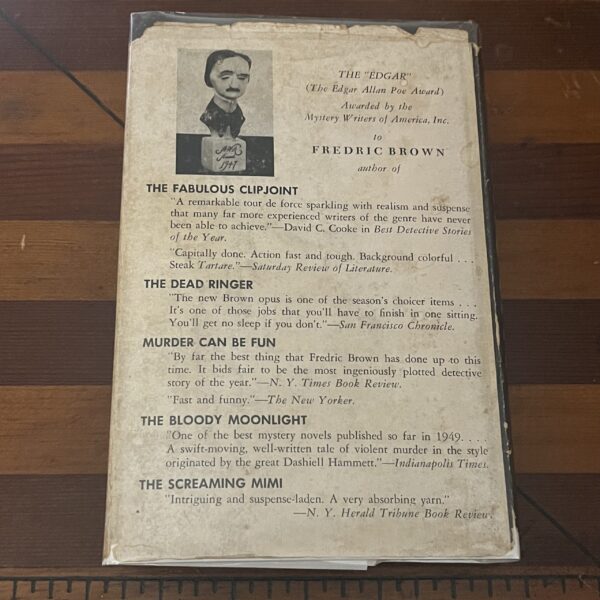 THE "EDGAR"
(The Edgar Allan Poe Award)
Awarded by the
Mystery Writers of America, Inc.
to
FREDRIC BROWN
author of
MWA
Award
1947
THE FABULOUS CLIPJOINT
"A remarkable tour de force sparkling with realism and suspense
that many far more experienced writers of the genre have never
been able to achieve."—David C. Cooke in Best Detective Stories
of the Year.
"Capitally done. Action fast and tough. Background colorful . . .
Steak Tartare."—Saturday Review of Literature.
THE DEAD RINGER
"The new Brown opus is one of the season's choicer items . . .
It's one of those jobs that you'll have to finish in one sitting.
You'll get no sleep if you don't."—San Francisco Chronicle.
MURDER CAN BE FUN
"By far the best thing that Fredric Brown has done up to this
time. It bids fair to be the most ingeniously plotted detective
story of the year."—N. Y. Times Book Review.
"Fast and funny."—The New Yorker.
THE BLOODY MOONLIGHT
"One of the best mystery novels published so far in 1949. . . .
A swift-moving, well-written tale of violent murder in the style
originated by the great Dashiell Hammett."—Indianapolis Times.
THE SCREAMING MIMI
"Intriguing and suspense-laden. A very absorbing yarn."
—N. Y. Herald Tribune Book Review.